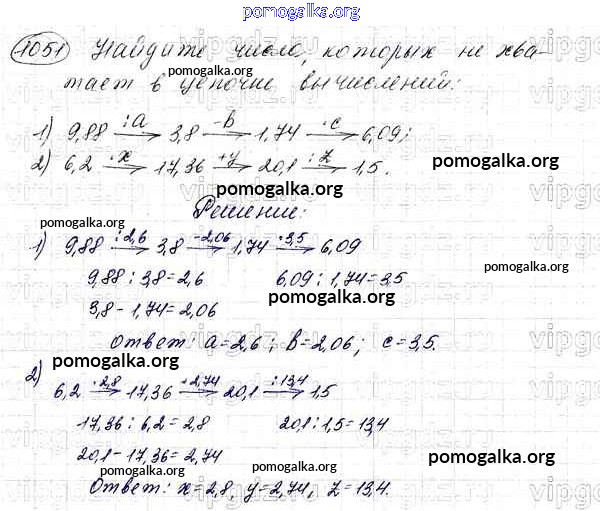 pomogalka.org
1051 Найдите числа, которых не хва-
pomogalka.org
тает в цепочке вычислений:
1) 9,88 :a→ 3,8 -b→ 1,74 ·c→ 6,09;
2) 6,2 ·x→ 17,36 +y→ 20,1 :z→ 1,5.
pomogalka.org
pomogalka.org
Решение:
pomogalka.org
1) 9,88 :2,6→ 3,8 -2,06→ 1,74 ·3,5→ 6,09
pomogalka.org
9,88 : 3,8 = 2,6 6,09 : 1,74 = 3,5
pomogalka.org
3,8 - 1,74 = 2,06
Ответ: a = 2,6; b = 2,06; c = 3,5.
pomogalka.org
2) 6,2 ·2,8→ 17,36 +2,74→ 20,1 :13,4→ 1,5
17,36 : 6,2 = 2,8 20,1 : 1,5 = 13,4
20,1 - 17,36 = 2,74
pomogalka.org
pomogalka.org
Ответ: x = 2,8, y = 2,74, z = 13,4.
pomogalka.org